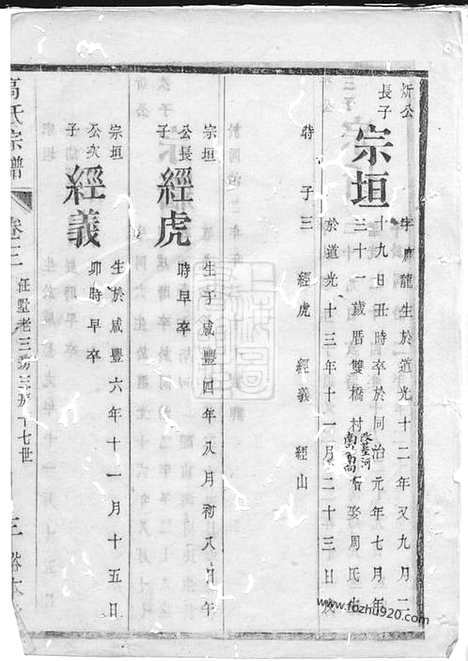 沂公
長子
宗垣
字 龍生於道光十二年又九月二
十九日丑時卒於同治元年七月年
三十一歲厝雙橋村 娶周氏生
於道光十三年十一月二十三日
時 子三 經虎 經義 經山
宗垣
公長
子
經虎
生于咸豐四年八月初八日午
時早卒
宗垣
公次
子
經義
生於咸豐六年十一月十五日
卯時早卒
高氏宗譜
卷十二
任墅老三房三房十七世
三
裕本
www.fozhu920.com